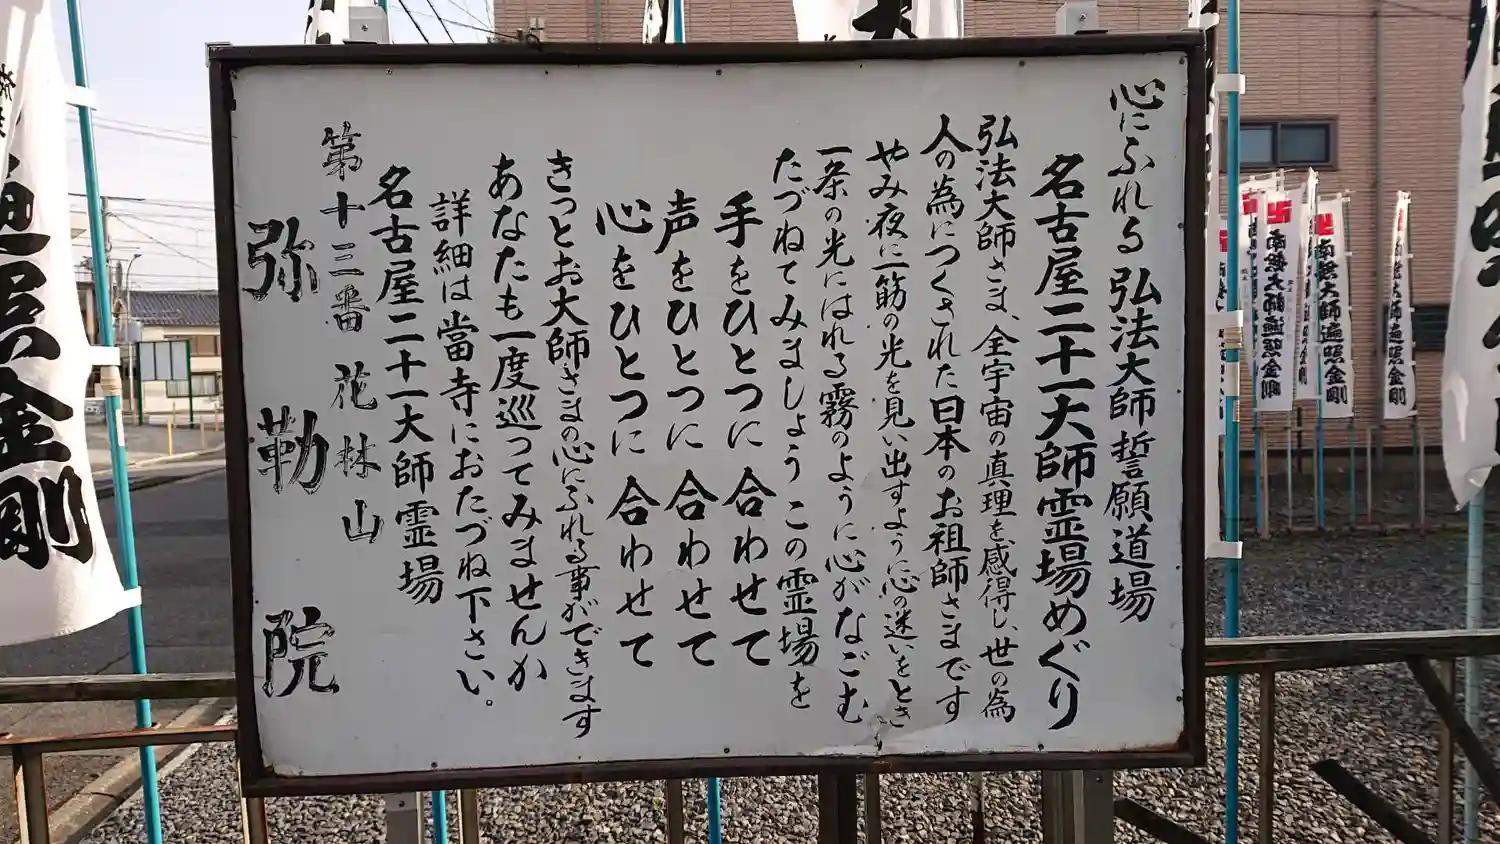 心にふれる 弘法大師誓願道場
名古屋二十一大師霊場めぐり
弘法大師さま、全宇宙の真理を感得し、世の為
人の為につくされた日本のお祖師さまです
やみ夜に一筋の光を見い出すように心の迷いをとき
一条の光にはれる霧のように心がなごむ
たづねてみましょうこの霊場を
手をひとつに合わせて
声をひとつに合わせて
心をひとつに合わせて
きっとお大師さまの心にふれる事ができます
あなたも一度巡ってみませんか
詳細は當寺におたづね下さい。
名古屋二十一大師霊場
第十三番 花林山
弥勒院
南無大師遍照金剛
南無大師遍照金剛
南無大師遍照金剛
照金剛